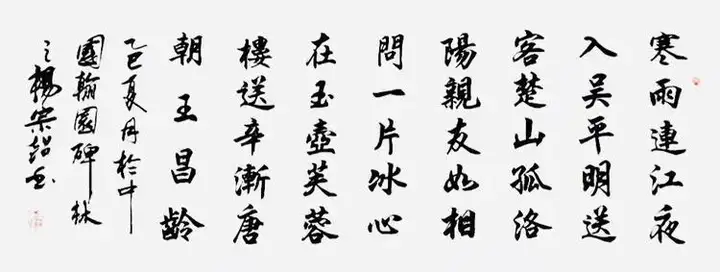 寒雨連江夜
入吴平明送
客楚山孤洛
陽親友如相
問一片冰心
在玉壺芙蓉
樓送辛漸唐
朝王昌龄
乙巳夏月於中
國翰園碑林
之楊宗